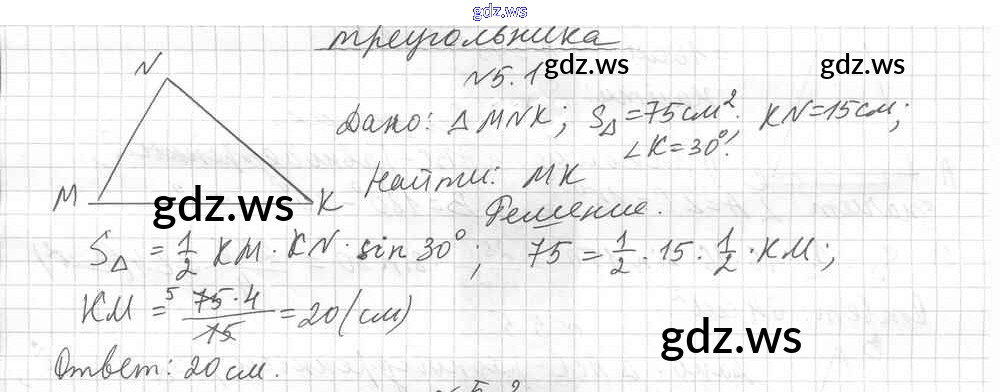 gdz.ws
треугольника
№5.1
gdz.ws
gdz.ws
N
Дано: △MNK; S△=75см²; KN=15см;
∠K=30°.
Найти: MK
M
K
gdz.ws
Решение.
S△ = 1/2 KM · KN · sin 30°; 75 = 1/2 · 15 · 1/2 · KM;
KM = 5 75·4/15 = 20 (см)
gdz.ws
Ответ: 20 см.